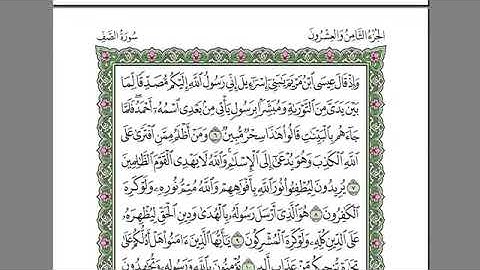 الجزء الثامن والعشرون
سورة الصف
وَإِذْ قَالَ عِيسَى ٱبْنُ مَرْيَمَ يَٰبَنِىٓ إِسْرَٰٓءِيلَ إِنِّى رَسُولُ ٱللَّهِ إِلَيْكُم مُّصَدِّقًا لِّمَا
بَيْنَ يَدَىَّ مِنَ ٱلتَّوْرَىٰةِ وَمُبَشِّرًۢا بِرَسُولٍ يَأْتِى مِنۢ بَعْدِى ٱسْمُهُۥٓ أَحْمَدُ ۖ فَلَمَّا
جَآءَهُم بِٱلْبَيِّنَٰتِ قَالُوا۟ هَٰذَا سِحْرٌ مُّبِينٌ ٦ وَمَنْ أَظْلَمُ مِمَّنِ ٱفْتَرَىٰ عَلَى
ٱللَّهِ ٱلْكَذِبَ وَهُوَ يُدْعَىٰٓ إِلَى ٱلْإِسْلَٰمِ ۚ وَٱللَّهُ لَا يَهْدِى ٱلْقَوْمَ ٱلظَّٰلِمِينَ
٧ يُرِيدُونَ لِيُطْفِـُٔوا۟ نُورَ ٱللَّهِ بِأَفْوَٰهِهِمْ وَٱللَّهُ مُتِمُّ نُورِهِۦ وَلَوْ كَرِهَ
ٱلْكَٰفِرُونَ ٨ هُوَ ٱلَّذِىٓ أَرْسَلَ رَسُولَهُۥ بِٱلْهُدَىٰ وَدِينِ ٱلْحَقِّ لِيُظْهِرَهُۥ
عَلَى ٱلدِّينِ كُلِّهِۦ وَلَوْ كَرِهَ ٱلْمُشْرِكُونَ ٩ يَٰٓأَيُّهَا ٱلَّذِينَ ءَامَنُوا۟ هَلْ أَدُلُّكُمْ عَلَىٰ
تِجَٰرَةٍ تُنجِيكُم مِّنْ عَذَابٍ أَلِيمٍ ١٠ تُؤْمِنُونَ بِٱللَّهِ وَرَسُولِهِۦ وَتُجَٰهِدُونَ